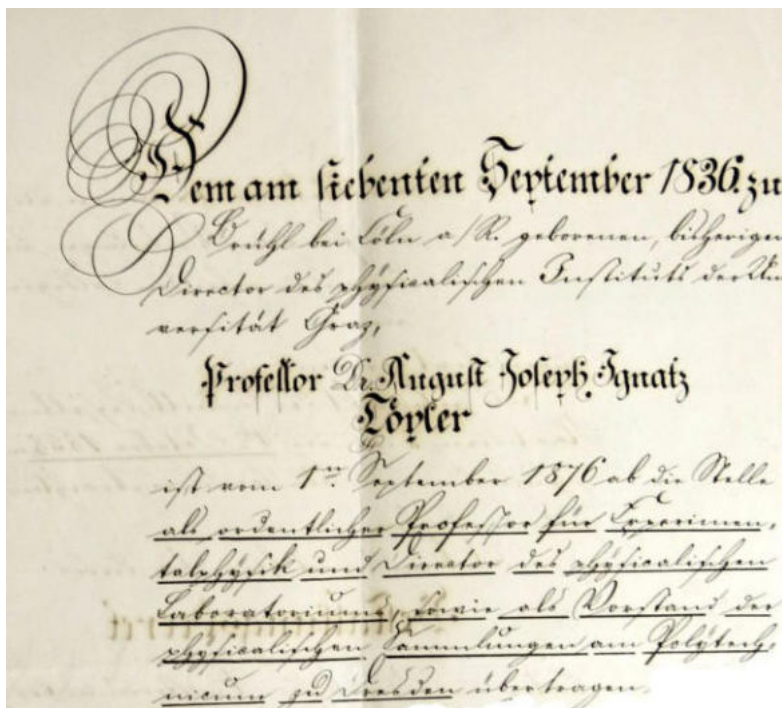 Dem am siebenten September 1836 zu
Brühl bei Cöln a/R. geborenen, bisherigen
Director des physicalischen Instituts der Uni
versität Graz,
Professor Dr. August Joseph Ignatz
Töpler
ist vom 1ten September 1876 ab die Stelle
als ordentlicher Professor für Experimen,
talphysik und Director des physicalischen
Laboratoriums, sowie als Vorstand der
physicalischen Sammlungen am Polytech,
nicum zu Dresden übertragen.